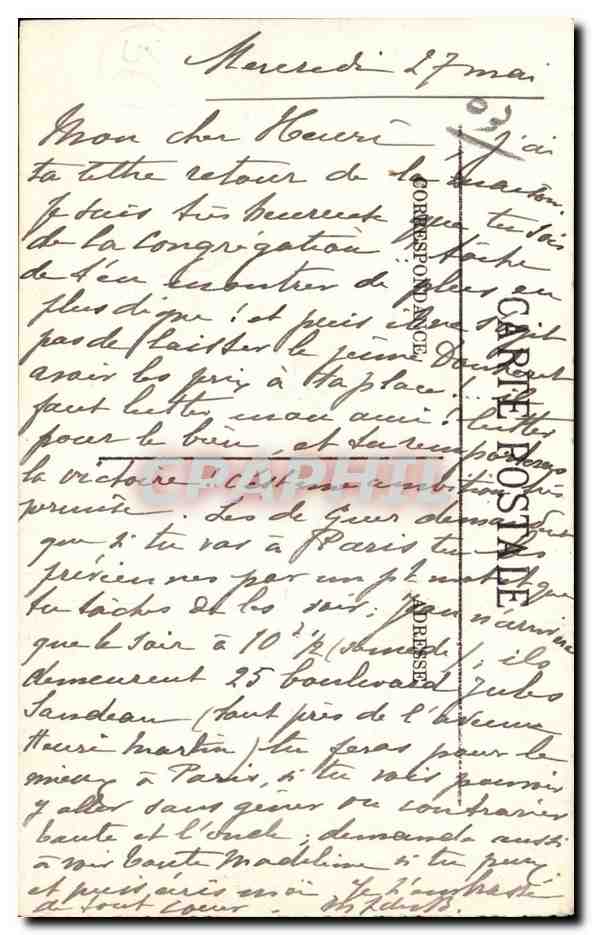 Mercredi 27 mai
03
Mon cher Henri, j'ai
ta lettre retour de la maison.
Je suis très heureux que tu sois
de la Congrégation tâche
de t'en montrer de plus en
plus digne ! et puis il ne s'agit
pas de laisser le jeune
avoir les prix à ta place !... il
faut lutter mon ami ! lutter
pour le bien, et tu remporteras
la victoire ! c'est une ambition très
permise. Les de Guer demandent
que si tu vas à Paris tu les
préviennes par un pt mot et que
tu tâches de les voir ; Jean n'arrive
que le soir à 10h 1/2 (samedi) ; ils
demeurent 25 boulevard Jules
Sandeau (tout près de l'avenue
Henri Martin) tu feras pour le
mieux à Paris, si tu vois pouvoir
y aller sans gêner ou contrarier
tante et l'oncle ; demande aussi
à voir tante Madeleine si tu peux
et puis écris moi Je t'embrasse
de tout coeur.
CARTE POSTALE
CORRESPONDANCE
ADRESSE
CPAPHIL